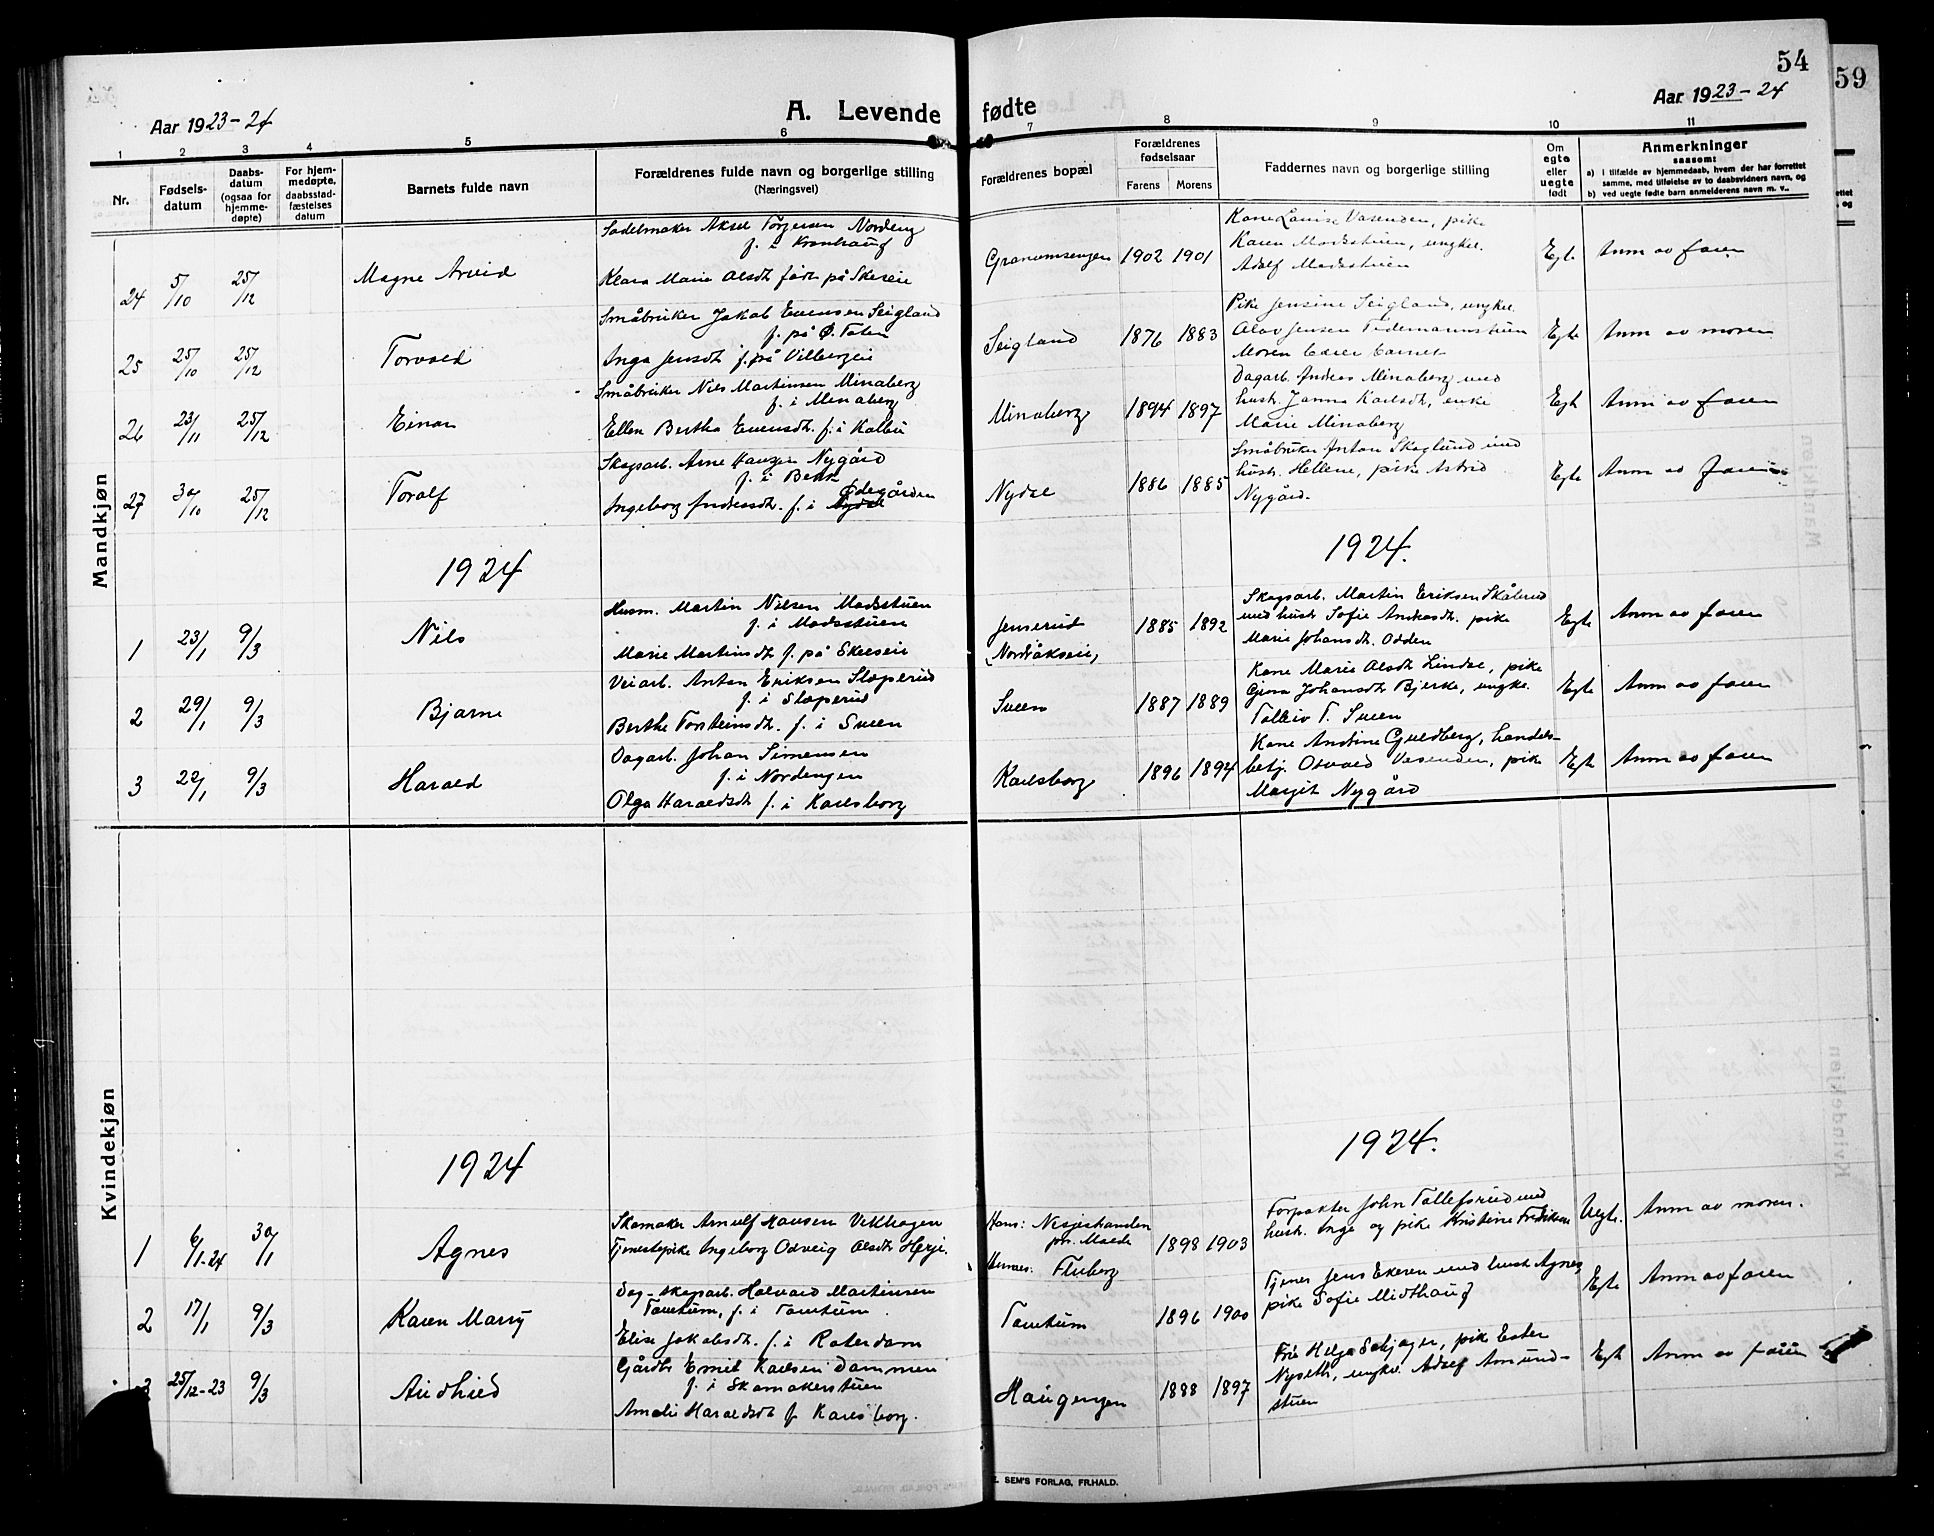 54
59
Aar 1923-24
A. Levende fødte
Aar 1923-24
1 2 3 4 5 6 7 8 9 10 11
Nr.
Fødsels-
datum
Daabs-
datum
(ogsaa for
hjemme-
døpte)
For hjem-
medøpte,
daabsstad-
fæstelses
datum
Barnets fulde navn
Forældrenes fulde navn og borgerlige stilling
(Næringsvei)
Forældrenes bopæl
Forældrenes
fødselsaar
Farens Morens
Faddernes navn og borgerlige stilling
Om
egte
eller
uegte
født
Anmerkninger
saasom:
a) i tilfælde av hjemmedaab, hvem der har forrettet
samme, med tilføielse av to daabsvidners navn, og
b) ved uegte fødte barn anmelderens navn m. v..
Mandkjøn
24 5/10 25/12 Magne Arvid
Sadelmaker Aksel Torgersen Nordeng
f. i Kronhaug
Klara Marie Olsdt født på Skeseie
Granumsengen 1902 1901
Kone Louise Vasenden, pike
Karen Madsstuen, ungkel.
Adolf Madsstuen
Egte Anm av faren
25 25/10 25/12 Torvald
Småbruker Jakob Evensen Seigland
f. på Ø. Toten
Inga Jensdt f. på Vilbergeie
Seigland 1876 1883
Pike Jensine Seigland, ungkel.
Olav Jensen Tidemannstuen
Moren bærer barnet
Egte Anm av moren
26 23/11 25/12 Einar
Småbruker Nils Martinsen Minaberg
f. i Minaberg
Ellen Bertha Evensdt. f. i Kalbu
Minaberg 1894 1897
Dagarb. Andreas Minaberg med
hustr. Janna Karlsdt, enke
Marie Minaberg
Egte Anm av faren
27 30/10 25/12 Toralf
Skogsarb. Arne Hansen Nygård
f. i Berk
Ingeborg Andreasdt. f. i Nydal Ødegården
Nydal 1886 1885
Småbruker Anton Skoglund med
hustr. Hellene, pike Astrid
Nygård.
Egte Anm av faren
1924
1924.
1 23/1 9/3 Nils
Husm. Martin Nilsen Madsstuen
f. i Madsstuen
Marie Martinsdt f. på Skeseie
Jenserud
(Nordråkseie)
1885 1892
Skogsarb. Martin Eriksen Skålerud
med hustr. Sofie Andreasdt. pike
Marie Johansdt. Odden
Egte Anm av faren
2 29/1 9/3 Bjarne
Veiarb. Anton Eriksen Sloperud
f. i Sloperud
Berthe Torsteinsdt. f. i Sveen
Sveen 1887 1889
Kone Marie Olsdt Lindse, pike
Gina Johansdt Bjerke, ungke.
Tolleiv T. Sveen
Egte Anm av faren
3 22/1 9/3 Harald
Dagarb. Johan Simensen
f. i Nordengen
Olga Haraldsdt f. i Karlsborg
Karlsborg 1896 1894
Kone Andrine Guldberg, handels-
betj. Osvald Vasenden, pike
Margit Nygård
Egte Anm av faren
Kvindekjøn
1924
1924.
1 6/1-24 30/1 Agnes
Skomaker Arnulf Hansen Vikhagen
Tjenestepike Ingeborg Odveig Olsdt
Hans: Nesjestranden
pr. Molde
Hennes: Fluberg
1898 1903
Forpakter John Tollefsrud med
hustr. Inga og pike Kristine Fredriksen
Uegte. Anm av moren.
2 17/1 9/3 Karen Marry
Dag-skogsarb. Halvard Martinsen
f. i
Elise Jakobsdt. f. i Roterdam
1896 1900
Tjener Jens Ekeren med hustr Agnes,
pike Sofie Midthaug
Egte Anm av faren
3 25/12-23 9/3 Audhild
Gårdbr Emil Karlsen Dammen
f. i Skomakerstuen
Amalie Haraldsdt f. Karlsborg.
Haugengen 1888 1897
Fru Helga Sebjager, pike Ester
Nyseth, ungkv. Adolf Amund-
stuen
Egte Anm av faren
E. SEM'S FORLAG, FR.HALD.